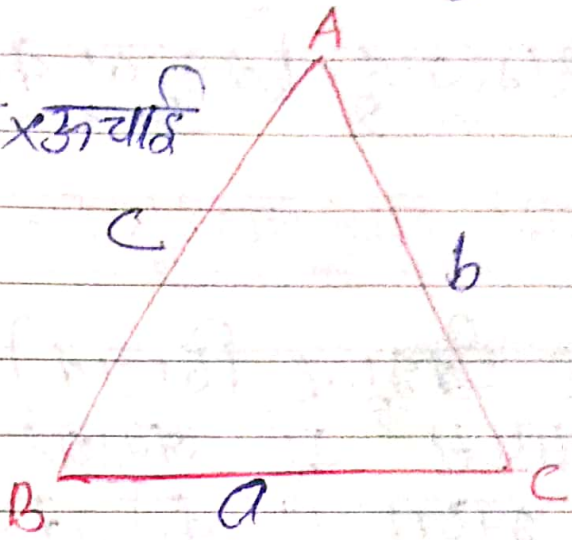 A
×ऊचाई
c
b
B
a
C